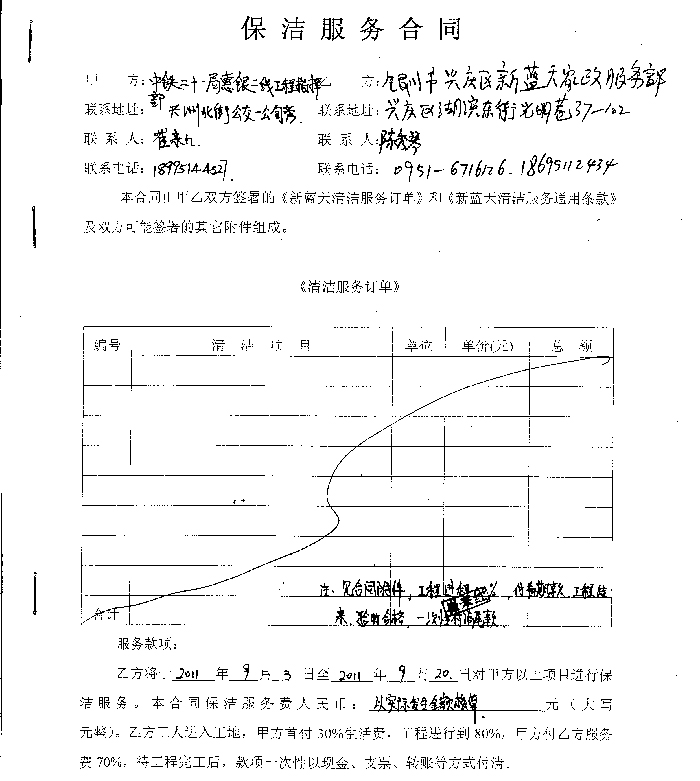 保洁服务合同
甲 方：中铁二十一局惠银二线工程指挥部 方：银川市兴庆区新蓝天家政服务部
联系地址： 北街公交一公司旁 联系地址：兴庆区湖滨东街光明巷37-102
联系人： 联系人：陈秀琴
联系电话： 联系电话：0951-6716126.18695112434
本合同由甲乙双方签署的《新蓝天清洁服务订单》和《新蓝天清洁服务通用条款》
及双方可能签署的其它附件组成。
《清洁服务订单》
编号 清洁项目 单位 单价(元) 总额
注：见合同附件，工程 %，付 款，工程结
合计 束，验收合格，一次性 款
服务款项：
乙方将于 2011 年 9 月 3 日至 2011 年 9 月 20 日对甲方以上项目进行保
洁服务。本合同保洁服务费人民币：以实际发生金额 元（大写
元整）。乙方工人进入工地，甲方首付30%生活费，工程进行到80%，甲方付乙方服务
费70%，待工程完工后，款项一次性以现金、支票、转账等方式付清.